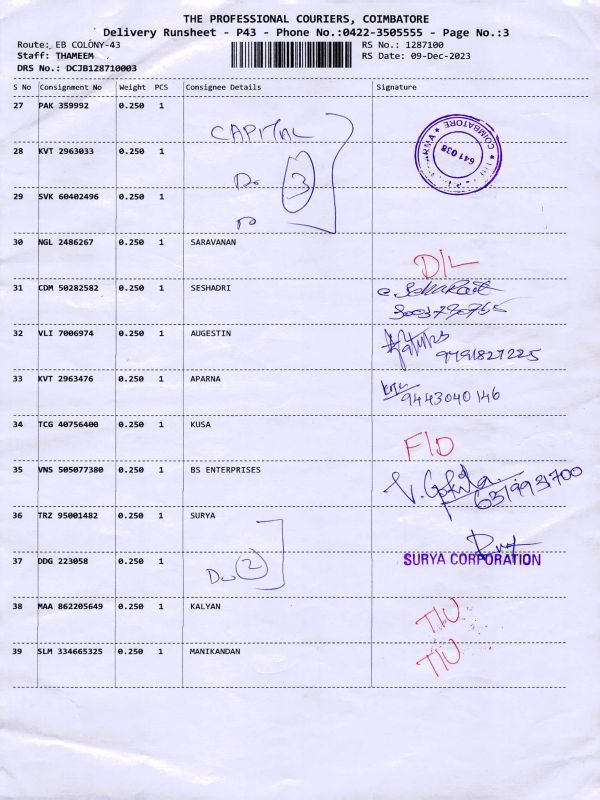 THE PROFESSIONAL COURIERS, COIMBATORE
Delivery Runsheet - P43 - Phone No.:0422-3505555 - Page No.:3
Route: EB COLONY-43 RS No.: 1287100
Staff: THAMEEM RS Date: 09-Dec-2023
DRS No.: DCJB128710003
S No Consignment No Weight PCS Consignee Details Signature
27 PAK 359992 0.250 1
CAPITAL
COIMBATORE
641 038
28 KVT 2963033 0.250 1
Do 3
29 SVK 60402496 0.250 1
Do
30 NGL 2486267 0.250 1 SARAVANAN
D/L
31 CDM 50282582 0.250 1 SESHADRI
32 VLI 7006974 0.250 1 AUGESTIN
9791827225
33 KVT 2963476 0.250 1 APARNA
9443040146
34 TCG 40756400 0.250 1 KUSA
F/D
35 VNS 505077380 0.250 1 BS ENTERPRISES
V. Gokila
6379931700
36 TRZ 95001482 0.250 1 SURYA
37 DDG 223058 0.250 1 SURYA CORPORATION
Do 2
38 MAA 862205649 0.250 1 KALYAN
TIU
39 SLM 334665325 0.250 1 MANIKANDAN
TIU